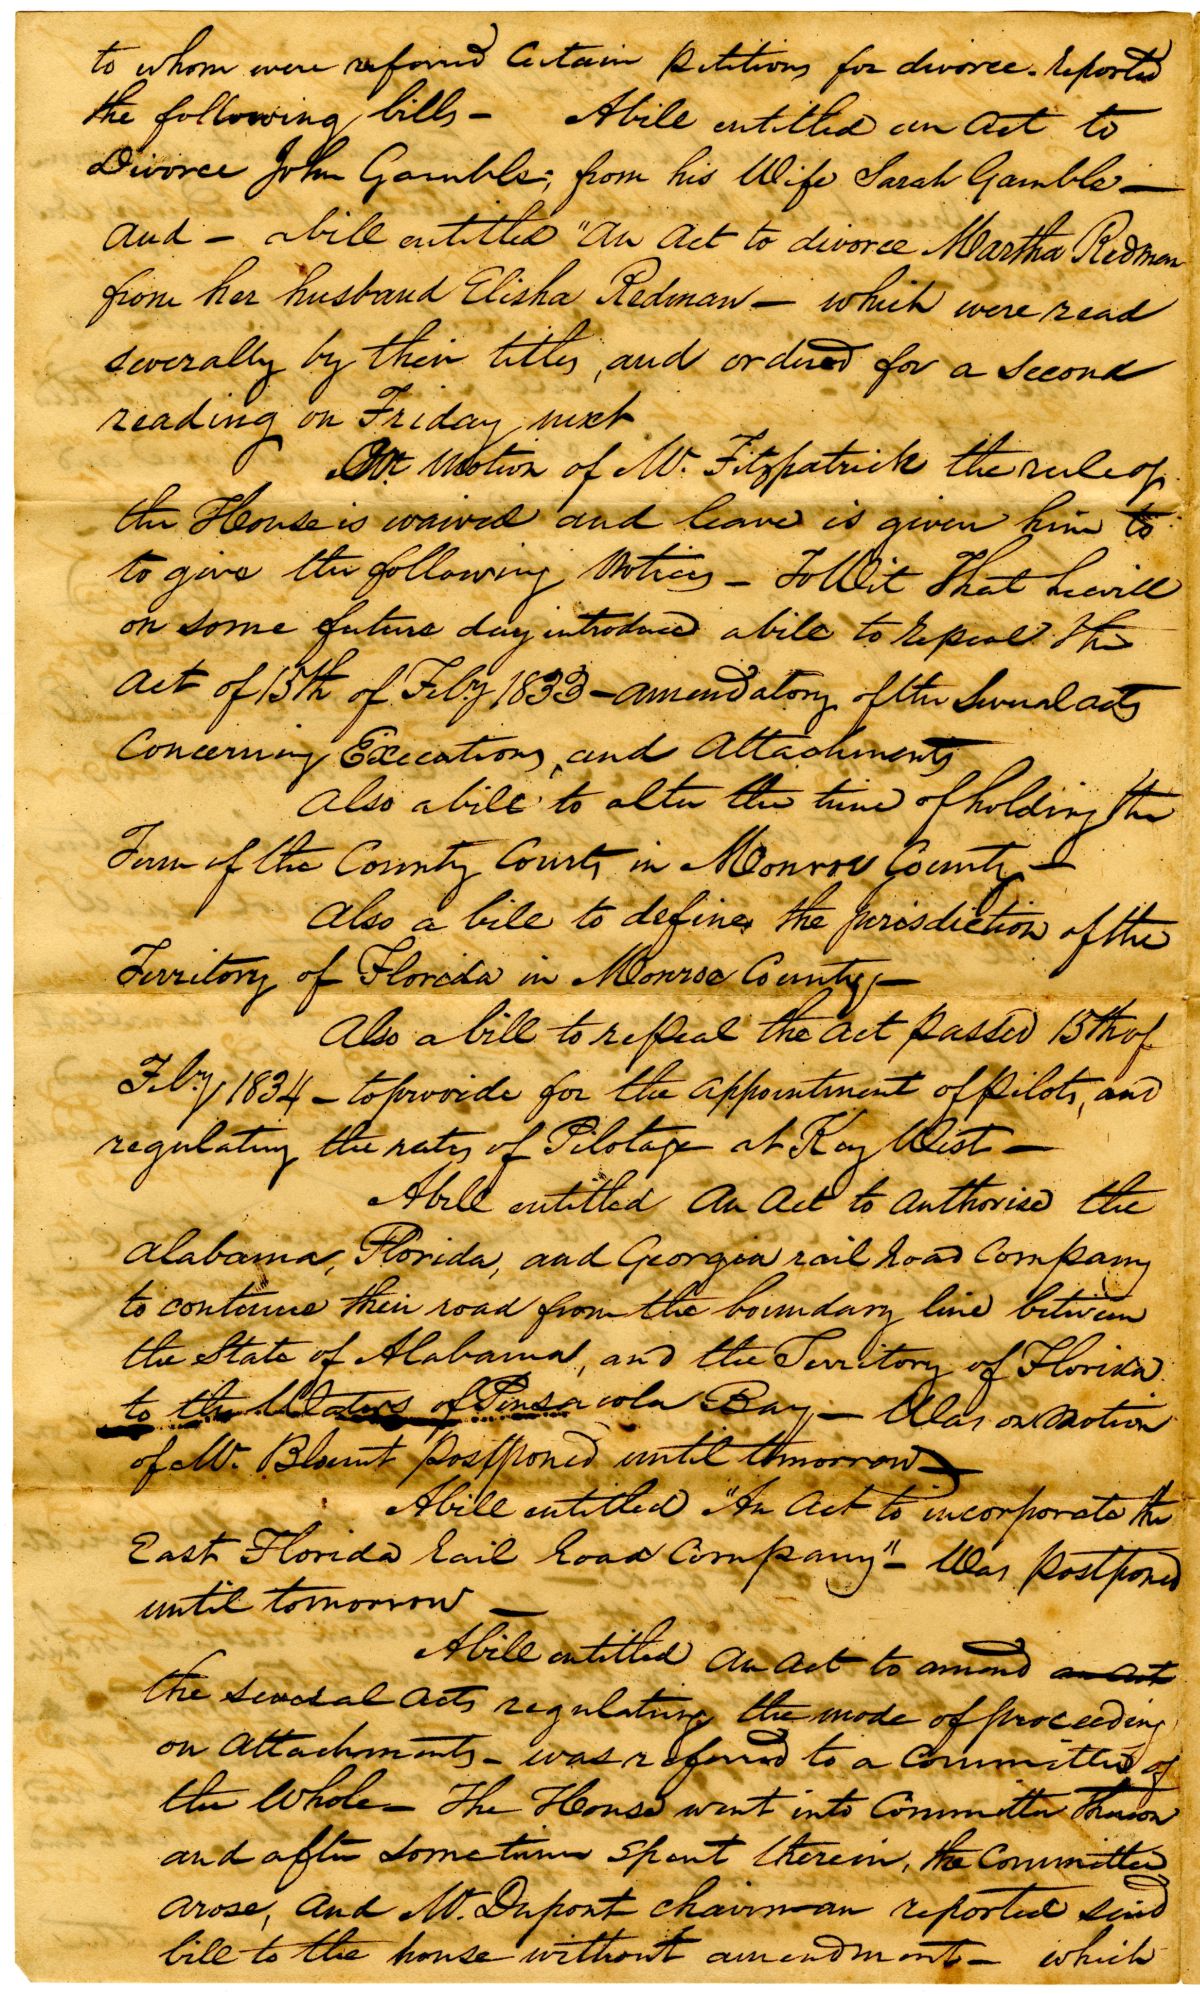 to whom were referred Certain petitions for divorce. reported
the following bills - A bill entitled an Act to
Divorce John Gamble, from his Wife Sarah Gamble -
and - a bill entitled "An Act to divorce Martha Redman
from her husband Elisha Redman - which were read
severally by their titles, and ordered for a second
reading on Friday next
On Motion of Mr. Fitzpatrick the rule of
the House is waived and leave is given him to
to give the following Notices - To Wit That he will
on some future day introduce a bill to repeal the
Act of 15th of Feby 1833 - amendatory of the Several acts
Concerning Executions, and Attachments
Also a bill to alter the time of holding the
Term of the County Courts in Monroe County -
Also a bill to define the jurisdiction of the
Territory of Florida in Monroe County, -
Also a bill to repeal the act passed 15th of
Feby 1834 - to provide for the appointment of Pilots, and
regulating the rates of Pilotage at Key West -
A bill entitled An Act to authorise the
Alabama, Florida, and Georgia rail road Company
to continue their road from the boundary line between
the State of Alabama, and the Territory of Florida
to the Waters of Pensacola Bay - Was on motion
of Mr. Blount postponed until tomorrow -
A bill entitled "An Act to incorporate the
East Florida rail road Company" - Was postponed
until tomorrow -
A bill entitled An Act to amend an act
the several acts regulating the mode of proceeding
on Attachments - was referred to a Committee of
the Whole - The House went into Committee thereon
and after sometime spent therein, the Committee
arose, and Mr. Dupont chairman reported said
bill to the house without amendment - which